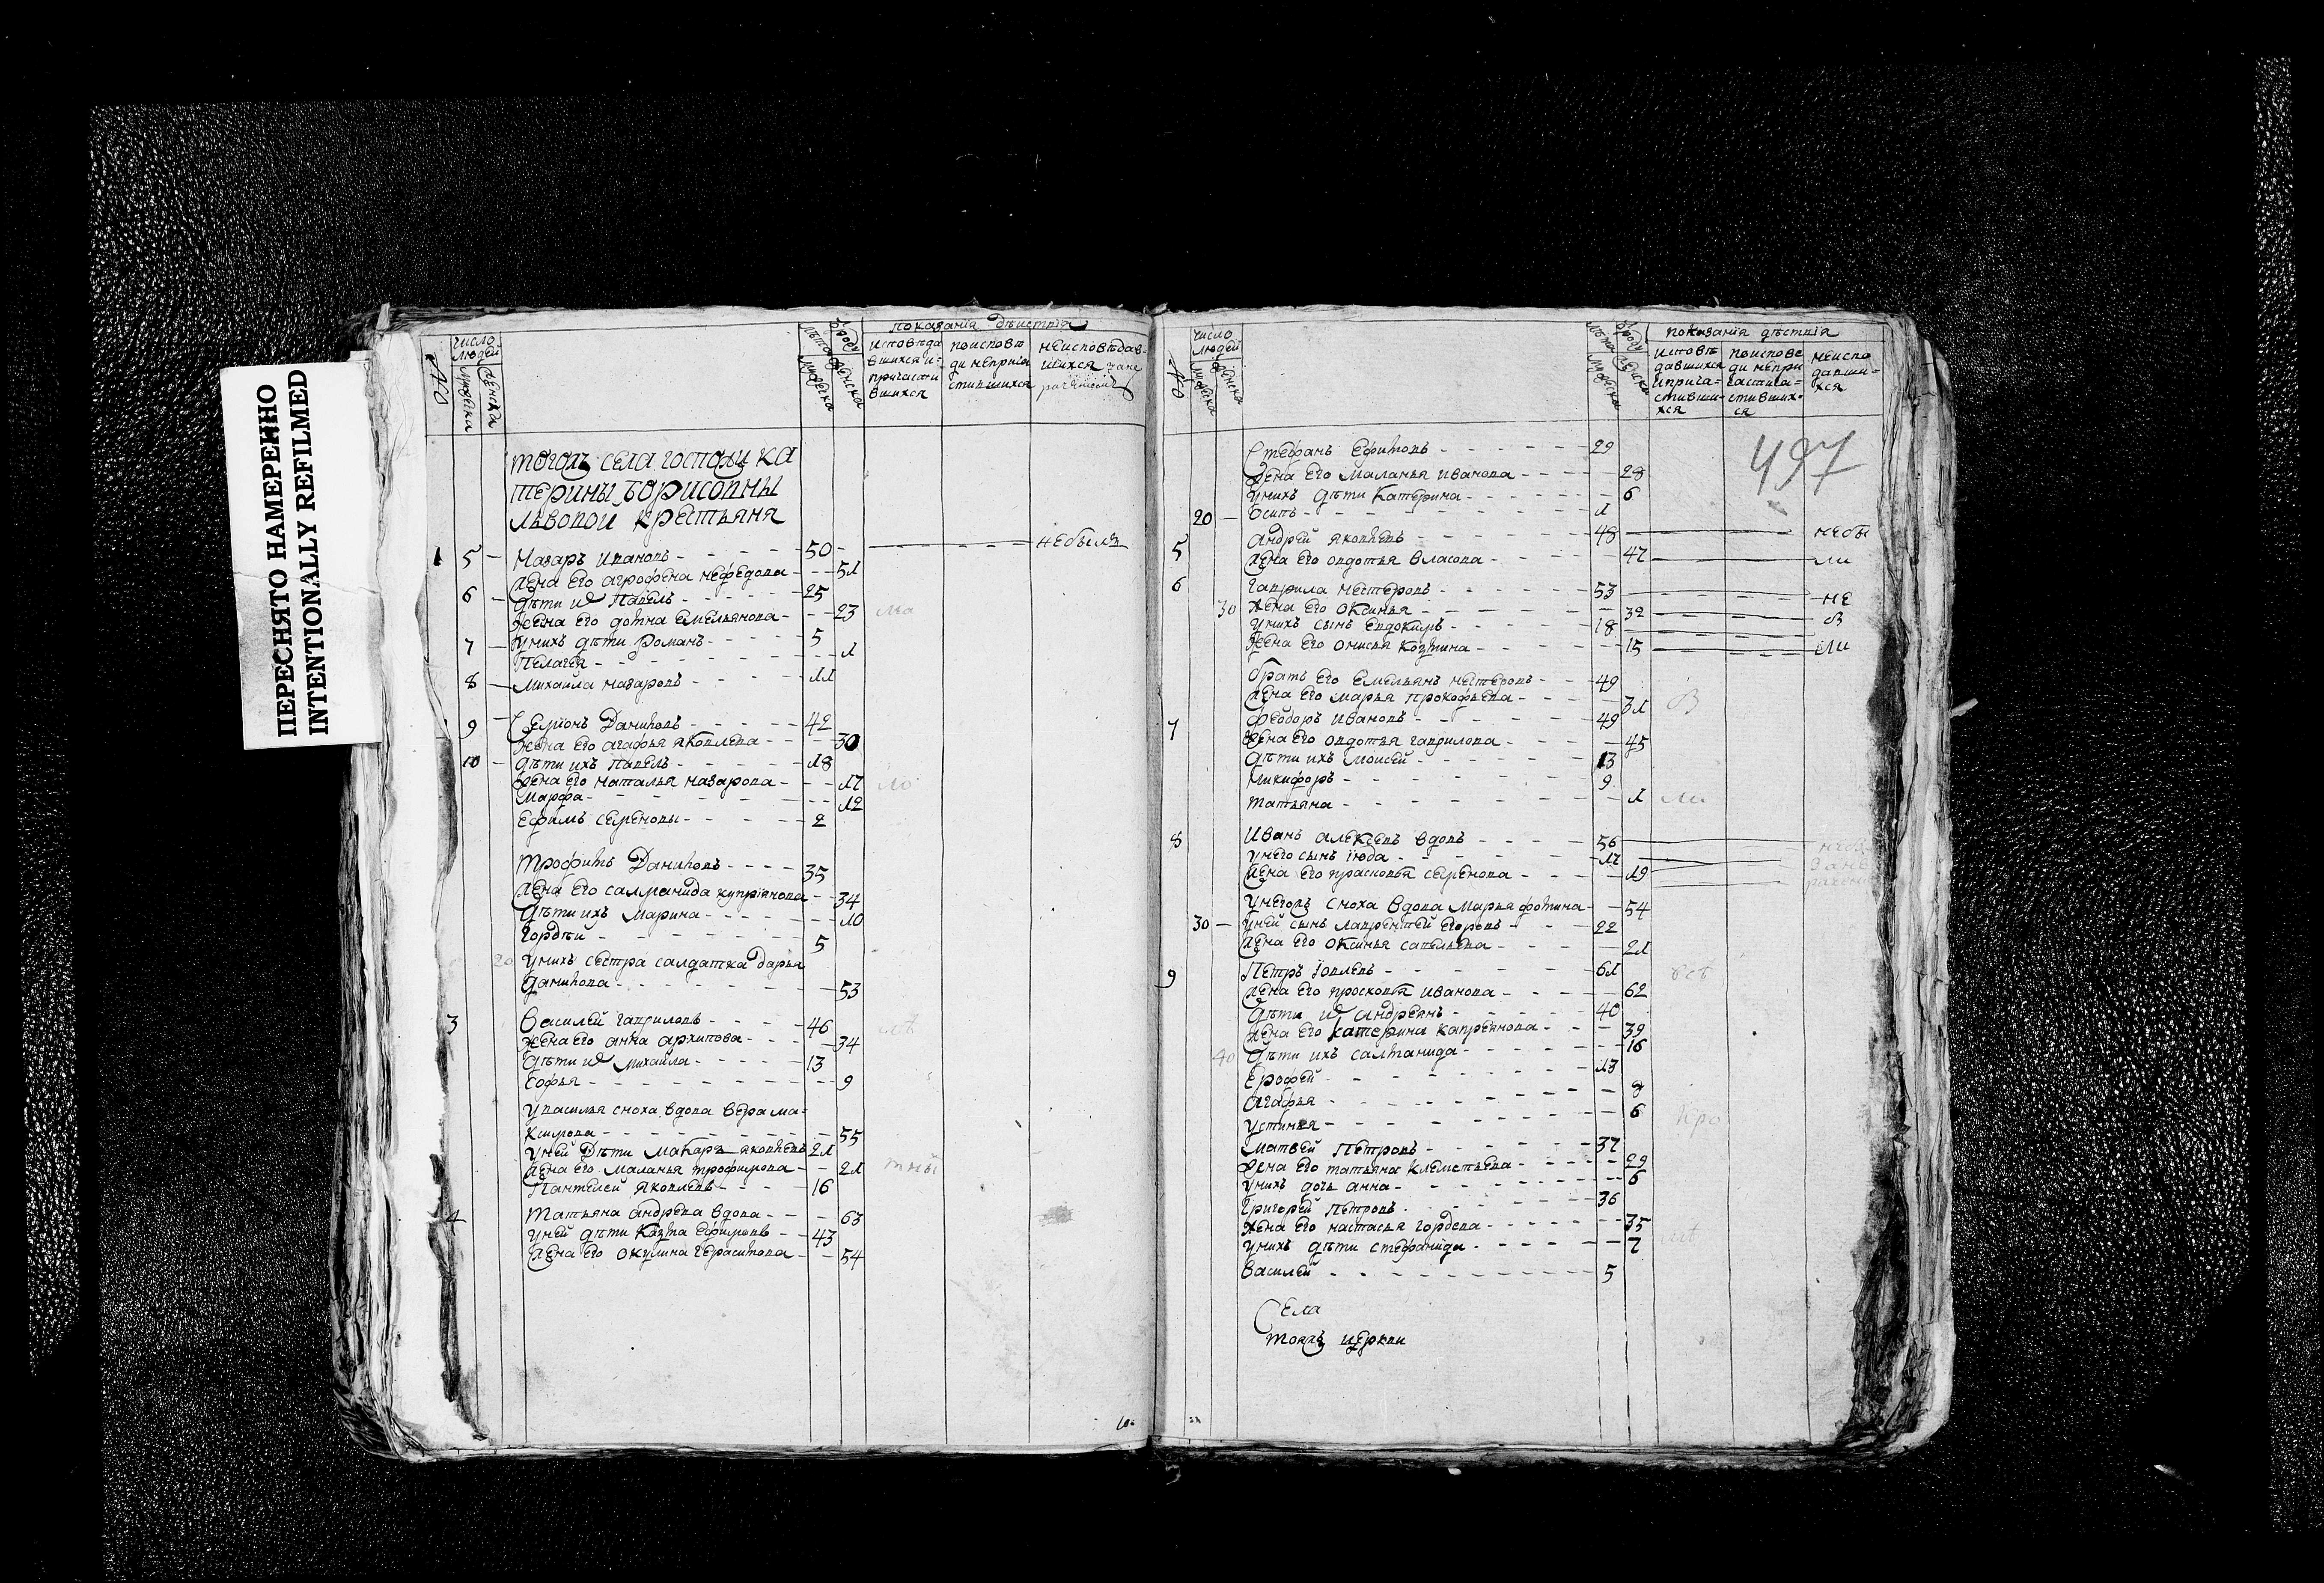 ПЕРЕСНЯТО НАМЕРЕННО
INTENTIONALLY REFILMED
№
число людей
мужска
женска
лѣта
ѿ роду
мужска
женска
показанія дѣиствія
исповѣдавшихся и причастившихся
поисповѣди непричастившихся
неисповѣдавшихся
тогожъ села госпожи ка
терины борисовны
львовой крестьяня
1 5 – Назаръ Ивановъ 50 – небылъ
жена его агрофена нефедова 51
6 – дѣти их Павелъ 25
жена его Фотиа Емельянова 23
7 – у нихъ дѣти Романъ 5
Пелагея 1
8 – михаила назаровъ 11
9 – Семіонъ Даниловъ 42
жена его агафья яковлева 30
10 – дѣти ихъ Павелъ 18
жена его наталья назарова 17
Марфа 12
Ефимъ семеновы 2
трофимъ Даниловъ 35
жена его саломанида купріянова 34
дѣти ихъ Марина 10
Гордѣи 5
20 у нихъ сестра салдатка дарья
данилова 53
3 Василей гавриловъ 46
жена его анна архипова 34
дѣти их михаила 13
Софья 9
у василья сноха вдова вера ма=
ксимова 55
у ней Дѣти Макаръ яковлевъ 21
жена его маланья трофимова 21
Пантелей яковлевъ 16
4 татьяна андрева вдова 63
у ней дѣти Козма ефимовъ 43
жена его окулина герасимова 54
№
число людей
мужска
женска
лѣта
ѿ роду
мужска
женска
показанія дѣствія
исповѣдавшихся и причастившихся
поисповеди непричастившихся
неисповдавшихся
497
Стефанъ Ефимовъ 29
жена его маланья иванова 28
у нихъ дѣти Катерина 6
20 – Осипъ 1
5 андрей яковлевъ 48 небы
жена его овдотья власова 47 ли
6 гаврила нестеровъ 53 не
30 жена его оксинья 32 б
у нихъ сынъ Евдокимъ 18
жена его онисья козмина 15 ли
братъ его Емельянъ нестеровъ 49
жена его марья прокофьева 31
7 феодоръ ивановъ 49
жена его овдотья гаврилова 45
дѣти ихъ моисей 13
никифоръ 9
татьяна 1
8 Иванъ алексевъ вдовъ 56
у него сынъ іюда 17
жена его прасковья семенова 19
у негожъ сноха вдова марья фотина 54
30 – у ней сынъ лаврентей егоровъ 22
жена его оксинья савельева 21
9 Петръ іовлевъ 61
жена его просковья иванова 62
дѣти их андреянъ 40
жена его катерина капреянова 39
40 дѣти ихъ саломанида 16
Ерофей 13
агафья 8
устинья 6
матвей Петровъ 37
жена его татьяна клементьева 29
у нихъ дочь анна 6
григорей Петровъ 36
жена его настасья гордева 35
у нихъ дѣти стефанида 7
василей 5
Села
тояжъ церкви